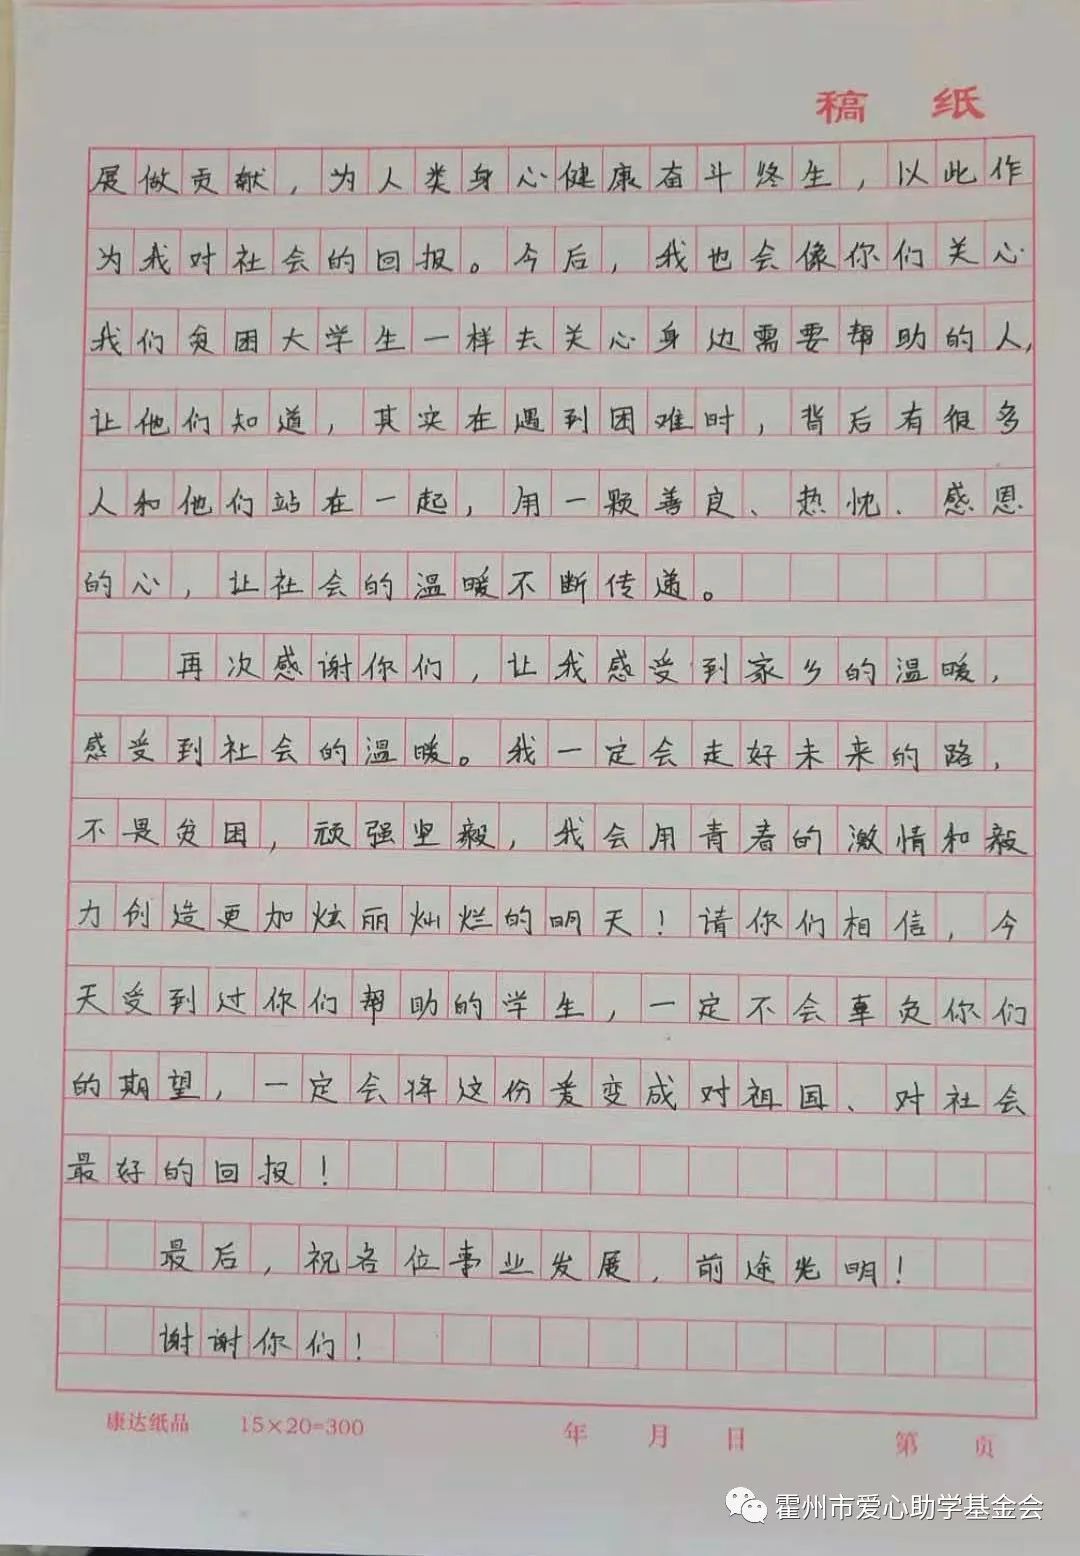 稿 纸
展做贡献，为人类身心健康奋斗终生，以此作
为我对社会的回报。今后，我也会像你们关心
我们贫困大学生一样去关心身边需要帮助的人，
让他们知道，其实在遇到困难时，背后有很多
人和他们站在一起，用一颗善良、热忱、感恩
的心，让社会的温暖不断传递。
再次感谢你们，让我感受到家乡的温暖，
感受到社会的温暖。我一定会走好未来的路，
不畏贫困，顽强坚毅，我会用青春的激情和毅
力创造更加炫丽灿烂的明天！请你们相信，今
天受到过你们帮助的学生，一定不会辜负你们
的期望，一定会将这份爱变成对祖国、对社会
最好的回报！
最后，祝各位事业发展，前途光明！
谢谢你们！
康达纸品 15×20=300 年 月 日 第 页
霍州市爱心助学基金会